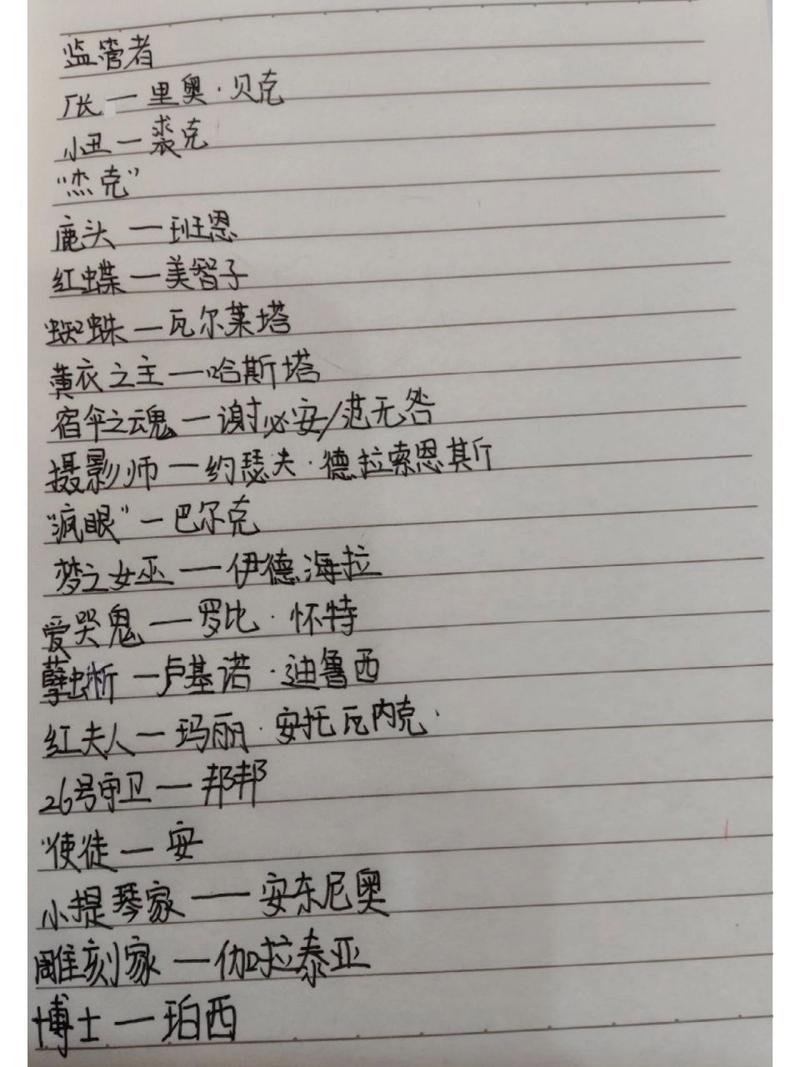 监管者
厂长一里奥·贝克
小丑一裘克
"杰克"
鹿头一班恩
红蝶一美智子
蜘蛛一瓦尔莱塔
黄衣之主一哈斯塔
宿伞之魂一谢必安/范无咎
摄影师一约瑟夫·德拉索恩斯
"疯眼"一巴尔克
梦之女巫一伊德海拉
爱哭鬼一罗比·怀特
孽蜥一卢基诺·迪鲁西
红夫人一玛丽·安托瓦内克·
26号守卫一邦邦
"使徒一安
小提琴家一安东尼奥
雕刻家一伽拉泰亚
博士一珀西